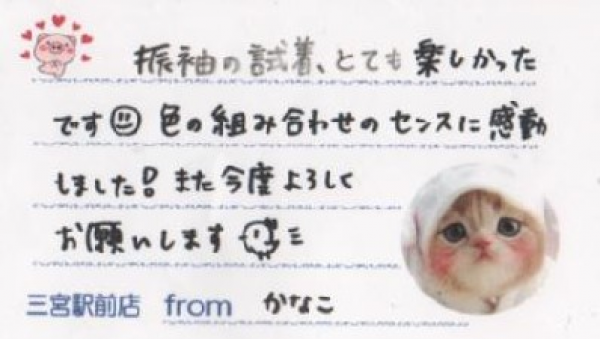 振袖の試着、とても楽しかった
です 色の組み合わせのセンスに感動
しました! また今度よろしく
お願いします
三宮駅前店 from かなこ